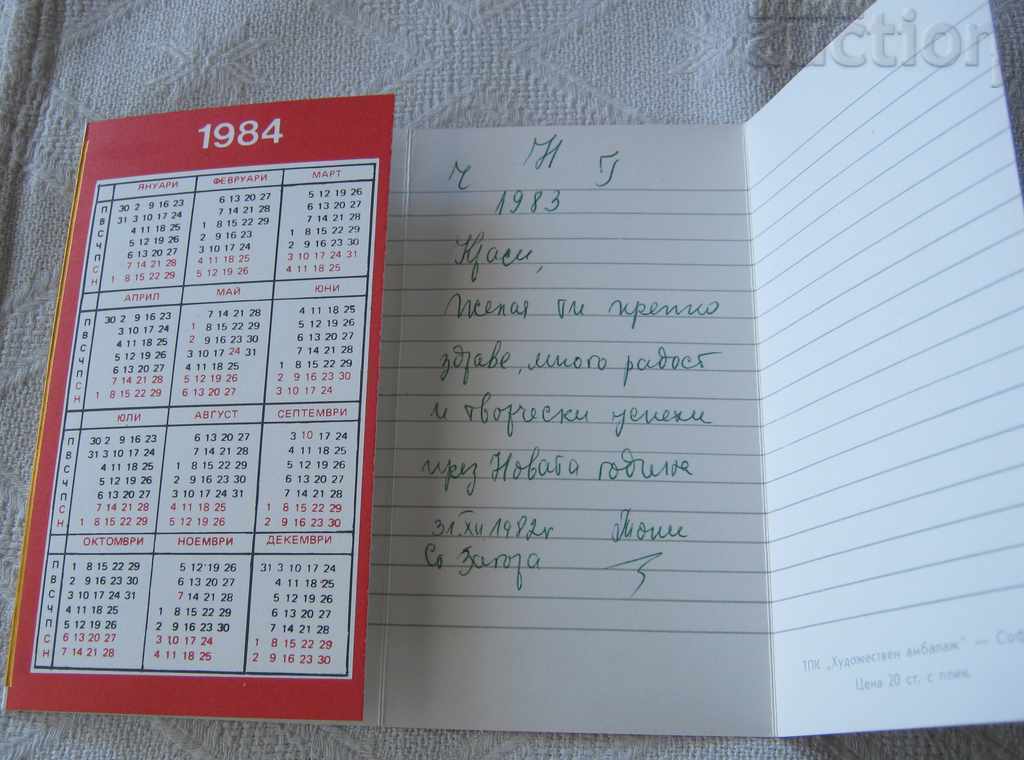 auction
1984
ЯНУАРИ ФЕВРУАРИ МАРТ
П 30 2 9 16 23 6 13 20 27 5 12 19 26
В 31 3 10 17 24 7 14 21 28 6 13 20 27
С 4 11 18 25 1 8 15 22 29 7 14 21 28
Ч 5 12 19 26 2 9 16 23 1 8 15 22 29
П 6 13 20 27 3 10 17 24 2 9 16 23 30
С 7 14 21 28 4 11 18 25 3 10 17 24 31
Н 1 8 15 22 29 5 12 19 26 4 11 18 25
АПРИЛ МАЙ ЮНИ
П 30 2 9 16 23 7 14 21 28 4 11 18 25
В 3 10 17 24 1 8 15 22 29 5 12 19 26
С 4 11 18 25 2 9 16 23 30 6 13 20 27
Ч 5 12 19 26 3 10 17 24 31 7 14 21 28
П 6 13 20 27 4 11 18 25 1 8 15 22 29
С 7 14 21 28 5 12 19 26 2 9 16 23 30
Н 1 8 15 22 29 6 13 20 27 3 10 17 24
ЮЛИ АВГУСТ СЕПТЕМВРИ
П 30 2 9 16 23 6 13 20 27 3 10 17 24
В 31 3 10 17 24 7 14 21 28 4 11 18 25
С 4 11 18 25 1 8 15 22 29 5 12 19 26
Ч 5 12 19 26 2 9 16 23 30 6 13 20 27
П 6 13 20 27 3 10 17 24 31 7 14 21 28
С 7 14 21 28 4 11 18 25 1 8 15 22 29
Н 1 8 15 22 29 5 12 19 26 2 9 16 23 30
ОКТОМВРИ НОЕМВРИ ДЕКЕМВРИ
П 1 8 15 22 29 5 12 19 26 31 3 10 17 24
В 2 9 16 23 30 6 13 20 27 4 11 18 25
С 3 10 17 24 31 7 14 21 28 5 12 19 26
Ч 4 11 18 25 1 8 15 22 29 6 13 20 27
П 5 12 19 26 2 9 16 23 30 7 14 21 28
С 6 13 20 27 3 10 17 24 1 8 15 22 29
Н 7 14 21 28 4 11 18 25 2 9 16 23 30
Ч Н Г
1983
Краси,
Желая ти крепко
здраве, много радост
и творчески успехи
през Новата година
31.XII 1982г Тони
Ст Загора
ТПК „Художествен амбалаж" — Соф
Цена 20 ст. с плик.